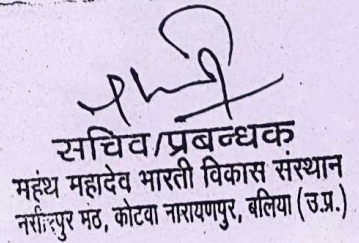 सचिव/प्रबन्धक
महंथ महादेव भारती विकास संस्थान
मठ, कोटवा नारायणपुर, बलिया (उ.प्र.)